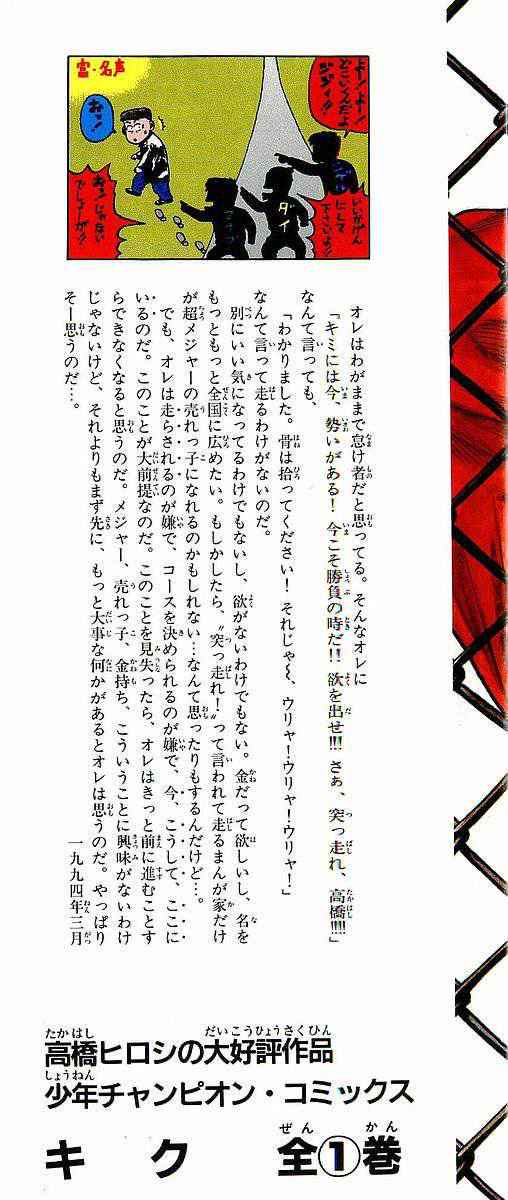 富・名声
よー!よー!
どこいくんだよ
ジジィ!!
いいかげん
にして
下さいよ!!
おっ!
おっ!じゃない
でしょーが!!
ダイ
オレはわがままで怠け者だと思ってる。そんなオレに
「キミには今、勢いがある! 今こそ勝負の時だ!! 欲を出せ!!! さぁ、突っ走れ、高橋!!!!」
なんて言っても、
「わかりました。骨は拾ってください! それじゃ〜、ウリャ!ウリャ!ウリャ!」
なんて言って走るわけがないのだ。
別にいい気になってるわけでもないし、欲がないわけでもない。金だって欲しいし、名を
もっともっと全国に広めたい。もしかしたら、〝突っ走れ!〟って言われて走るまんが家だけ
が超メジャーの売れっ子になれるのかもしれない…なんて思ったりもするんだけど…。
でも、オレは走らされるのが嫌で、コースを決められるのが嫌で、今、こうして、ここに
いるのだ。このことが大前提なのだ。このことを見失ったら、オレはきっと前に進むことす
らできなくなると思うのだ。メジャー、売れっ子、金持ち、こういうことに興味がないわけ
じゃないけど、それよりもまず先に、もっと大事な何かがあるとオレは思うのだ。やっぱり
そー思うのだ…。
一九九四年三月
高橋ヒロシの大好評作品
少年チャンピオン・コミックス
キク 全①巻